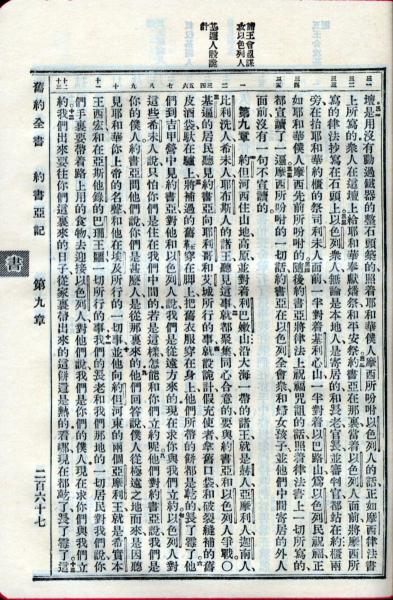 諸王會盟謀
攻以色列人
基遍人設詭
計
壇是用沒有動過鐵器的整石頭築的照着耶和華僕人摩西所吩咐以色列人的話正如摩西律法書
上所寫的衆人在這壇上給耶和華奉獻燔祭和平安祭約書亞在那裏當着以色列人面前將摩西所
寫的律法抄寫在石頭上以色列衆人無論是本地人是寄居的和長老官長並審判官都站在約櫃兩
旁在抬耶和華約櫃的祭司利未人面前一半對着基利心山一半對着以巴路山爲以色列民祝福正
如耶和華僕人摩西先前所吩咐的隨後約書亞將律法上祝福咒詛的話照着律法書上一切所寫的
都宣讀了一遍摩西所吩咐的一切話約書亞在以色列全會衆和婦女孩子並他們中間寄居的外人
面前沒有一句不宣讀的
第九章 約但河西住山地高原並對着利巴嫩山沿大海一帶的諸王就是赫人亞摩利人迦南人
比利洗人希未人耶布斯人的諸王聽見這事就都聚集同心合意的要與約書亞和以色列人爭戰〇
基遍的居民聽見約書亞向耶利哥和艾城所行的事就設詭計假充使者拿舊口袋和破裂縫補的舊
皮酒袋馱在驢上將補過的舊鞋穿在脚上把舊衣服穿在身上他們所帶的餅都是乾的長了霉了他
們到吉甲營中見約書亞對他和以色列人說我們是從遠方來的現在求你與我們立約以色列人對
這些希未人說只怕你們是住在我們中間的若是這樣怎能和你們立約呢他們對約書亞說我們是
你的僕人約書亞問他們說你們是甚麽人是從那裏來的他們回答說僕人從極遠之地而來是因聽
見耶和華你上帝的名聲和他在埃及所行的一切事並他向約但河東的兩個亞摩利王就是希實本
王西宏和在亞斯他錄的巴珊王噩一切所行的事我們的長老和我們那地的一切居民對我們說你
們手裏要帶着路上用的食物去迎接以色列人對他們說我們是你們的僕人現在求你們與我們立
約我們出來要往你們這裏來的日子從家裏帶出來的這餅還是熱的看哪現在都乾了長了霉了這
舊約全書 約書亞記 書 第九章 二百六十七